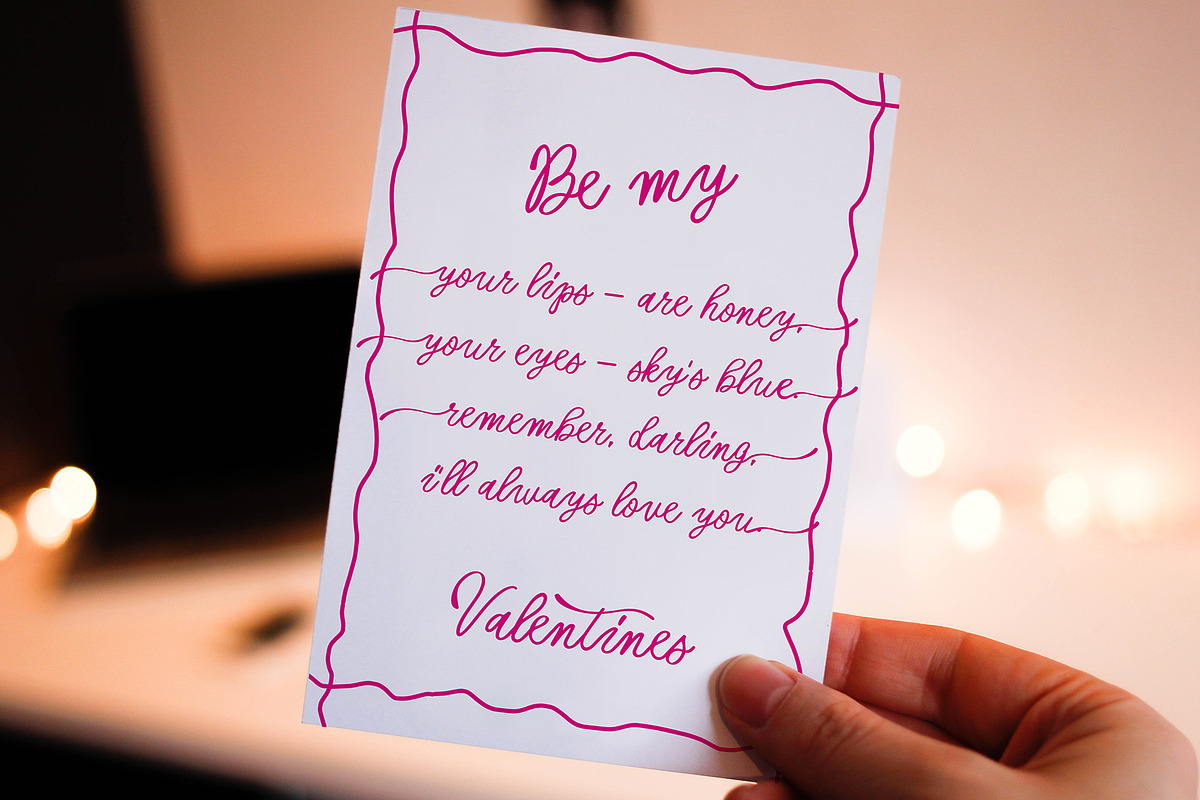 Be my
your lips – are honey,
your eyes – sky's blue.
remember, darling,
i'll always love you.
Valentines